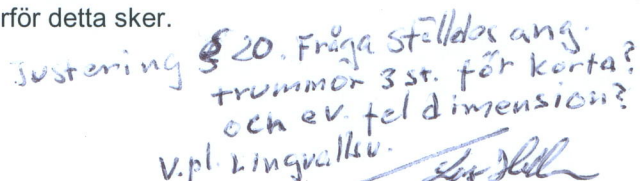 rför detta sker.
Justering § 20. Fråga ställdes ang.
trummor 3 st. för korta?
och ev. fel dimension?
V.pl. Lingvallsv.